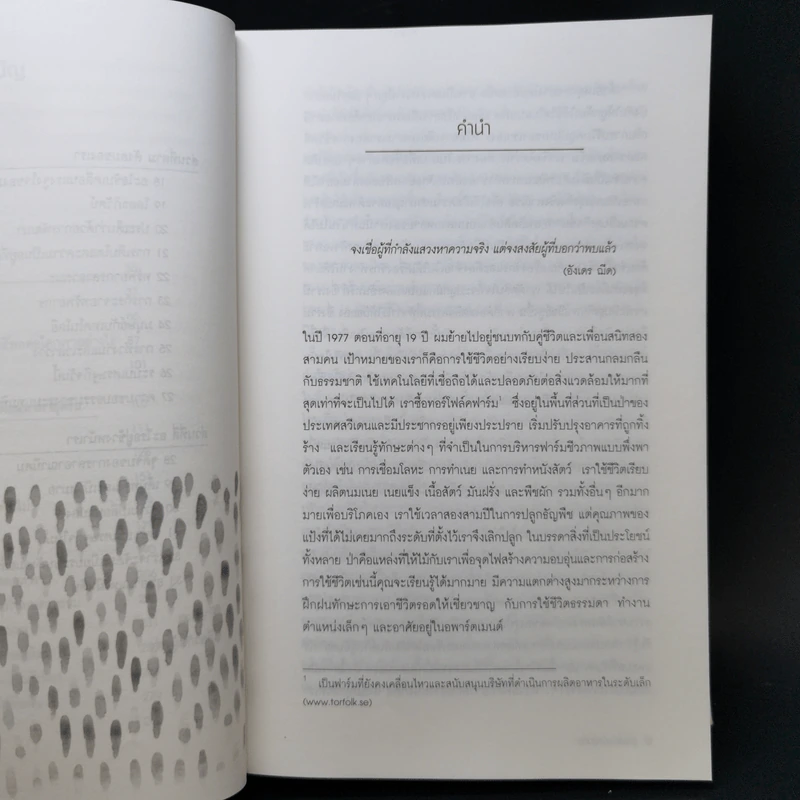 คำนำ
จงเชื่อผู้ที่กำลังแสวงหาความจริง แต่จงสงสัยผู้ที่บอกว่าพบแล้ว
(อังเดร ฌีด)
ในปี 1977 ตอนที่อายุ 19 ปี ผมย้ายไปอยู่ชนบทกับคู่ชีวิตและเพื่อนสนิทสอง
สามคน เป้าหมายของเราก็คือการใช้ชีวิตอย่างเรียบง่าย ประสานกลมกลืน
กับธรรมชาติ ใช้เทคโนโลยีที่เชื่อถือได้และปลอดภัยต่อสิ่งแวดล้อมให้มากที่
สุดเท่าที่จะเป็นไปได้ เราซื้อทอร์โฟล์คฟาร์ม¹ ซึ่งอยู่ในพื้นที่ส่วนที่เป็นป่าของ
ประเทศสวีเดนและมีประชากรอยู่เพียงประปราย เริ่มปรับปรุงอาคารที่ถูกทิ้ง
ร้าง และเรียนรู้ทักษะต่างๆ ที่จำเป็นในการบริหารฟาร์มชีวภาพแบบพึ่งพา
ตัวเอง เช่น การเชื่อมโลหะ การทำเนย และการทำหนังสัตว์ เราใช้ชีวิตเรียบ
ง่าย ผลิตนมเนย เนยแข็ง เนื้อสัตว์ มันฝรั่ง และพืชผัก รวมทั้งอื่นๆ อีกมาก
มายเพื่อบริโภคเอง เราใช้เวลาสองสามปีในการปลูกธัญพืช แต่คุณภาพของ
แป้งที่ได้ไม่เคยมากถึงระดับที่ตั้งไว้เราจึงเลิกปลูก ในบรรดาสิ่งที่เป็นประโยชน์
ทั้งหลาย ป่าคือแหล่งที่ให้ไม้กับเราเพื่อจุดไฟสร้างความอบอุ่นและการก่อสร้าง
การใช้ชีวิตเช่นนี้คุณจะเรียนรู้ได้มากมาย มีความแตกต่างสูงมากระหว่างการ
ฝึกฝนทักษะการเอาชีวิตรอดให้เชี่ยวชาญ กับการใช้ชีวิตธรรมดา ทำงาน
ตำแหน่งเล็กๆ และอาศัยอยู่ในอพาร์ตเมนต์
¹ เป็นฟาร์มที่ยังคงเคลื่อนไหวและสนับสนุนบริษัทที่ดำเนินการผลิตอาหารในระดับเล็ก
(www.torfolk.se)